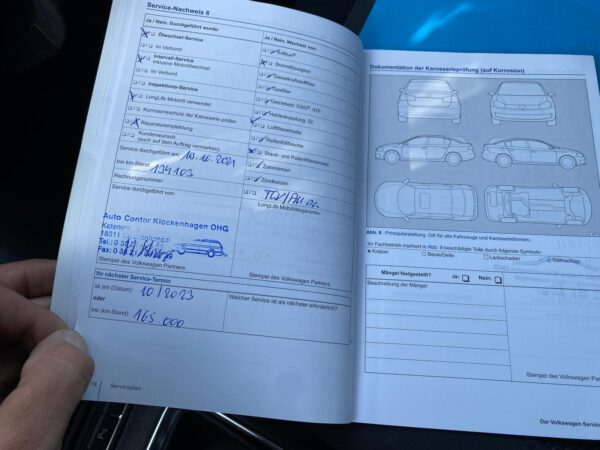 Service-Nachweis 6
Ja / Nein. Durchgeführt wurde:
Ölwechsel-Service
im Verbund
Intervall-Service
inklusive Motorölwechsel
im Verbund
Inspektions-Service
LongLife Motoröl verwendet
Korrosionsschutz der Karosserie prüfen
Reparaturempfehlung
Kundenwunsch
(auch auf dem Auftrag vermerken)
Service durchgeführt am: 10.10.2021
bei km-Stand: 134103
Rechnungsnummer:
Service durchgeführt von:
Auto Contor Klockenhagen OHG
18311
Tel.: 0
Fax: 0
Stempel des Volkswagen Partners
Ja / Nein. Wechsel von:
Bremsflüssigkeit
Dieselkraftstofffilter
Gasfilter
Getriebeöl: DSG®, ATF
Haldexkupplung: Öl
Luftfiltereinsatz
Reifenfüllflasche
Staub- und Pollenfiltereinsatz
Zahnriemen
Zündkerzen
LongLife Mobilitätsgarantie:
Stempel des Volkswagen Partners
Ihr nächster Service-Termin
ist am (Datum): 10/2023
oder
bei (km-Stand): 165.000
Welcher Service ist als nächster erforderlich?
16
Serviceplan
Dokumentation der Karosserieprüfung (auf Korrosion)
Abb. 9 Prinzipdarstellung. Gilt für alle Fahrzeuge und Karosserieformen.
Ihr Fachbetrieb markiert in Abb. 9 beschädigte Teile durch folgende Symbole:
Kratzer
Beule/Delle
Lackschaden
Steinschlag
Mängel festgestellt?
Ja:
Nein:
Beschreibung der Mängel:
Stempel des Volkswagen Partners
Der Volkswagen Service